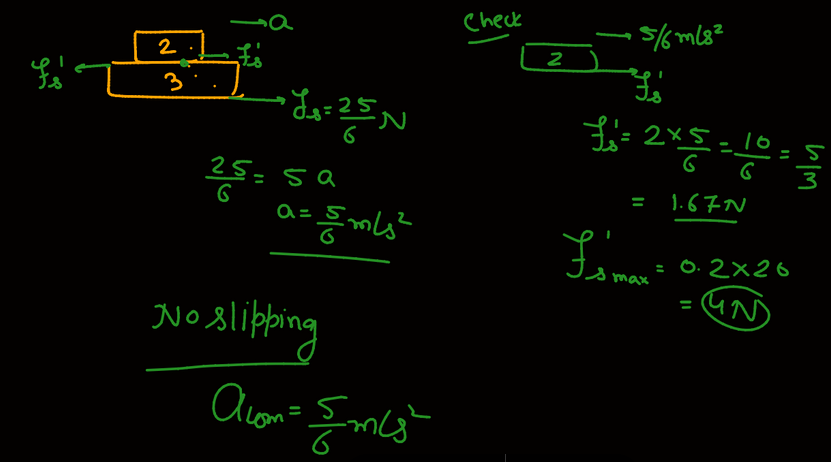 → a
2
fs'
fs'
3
fs = 25/6 N
25/6 = 5 a
a = 5/6 m/s²
No slipping
acom = 5/6 m/s²
Check
→ 5/6 m/s²
2
fs'
fs' = 2 × 5/6 = 10/6 = 5/3
= 1.67 N
fs'max = 0.2 × 20
= 4N